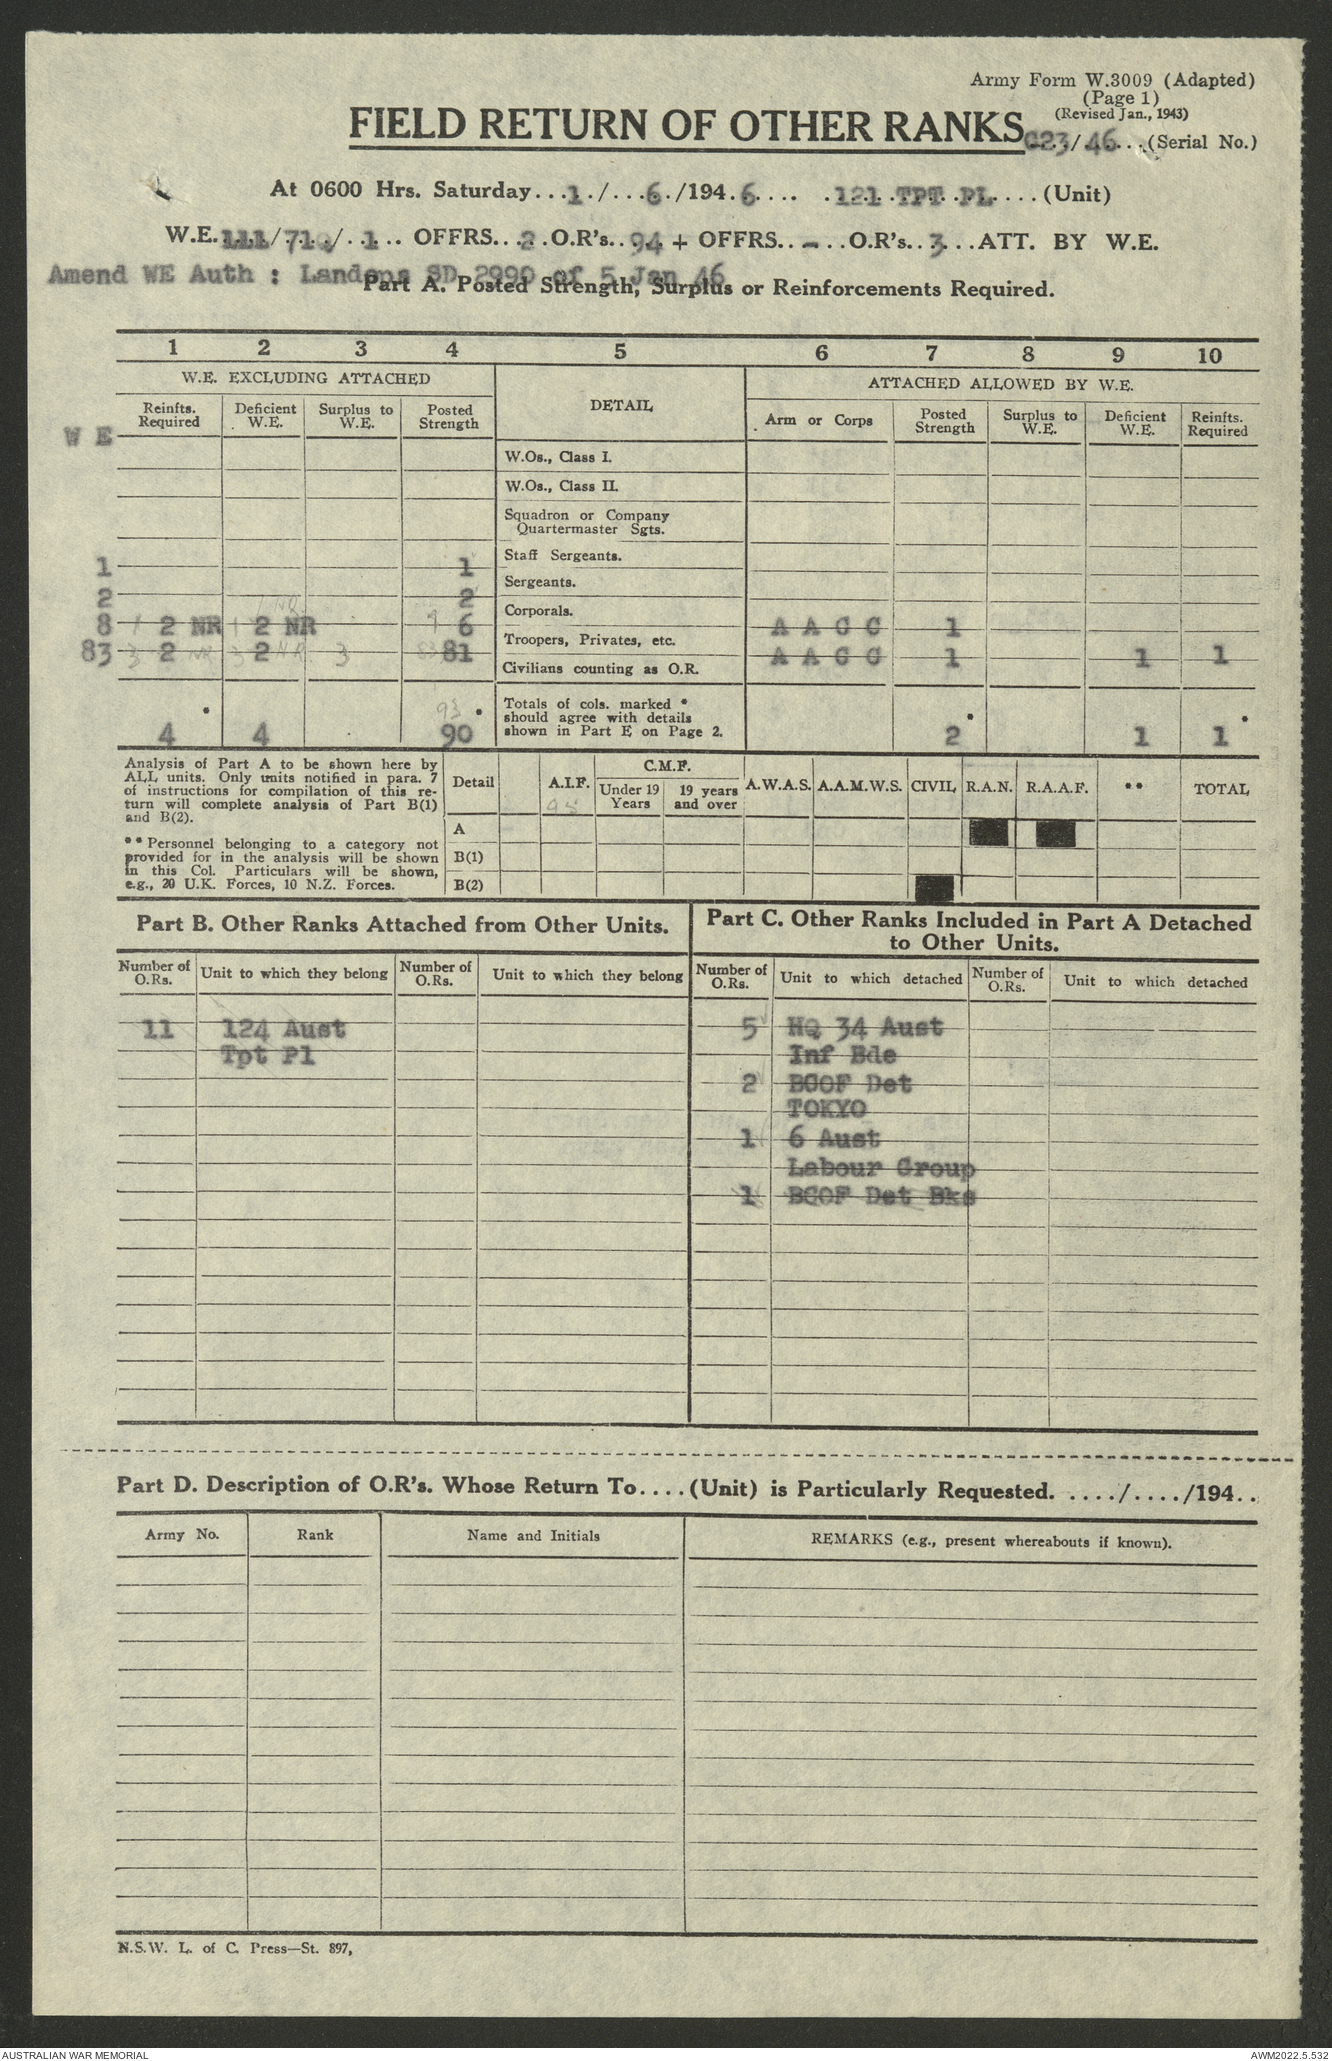 Army Form W.3009 (Adapted)
(Page 1)
(Revised Jan., 1943)
FIELD RETURN OF OTHER RANKS 023/46...(Serial No.)
At 0600 Hrs. Saturday...1./...6./194.6.... .121.TPT.PL....(Unit)
W.E.111/710/..1.. OFFRS...2.O.R's..94 + OFFRS..-...O.R's..3...ATT. BY W.E.
Amend WE Auth : Landops SD 2990 of 5 Jan 46
Part A. Posted Strength, Surplus or Reinforcements Required.
1 2 3 4 5 6 7 8 9 10
W.E. EXCLUDING ATTACHED DETAIL ATTACHED ALLOWED BY W.E.
Reinfts. Required Deficient W.E. Surplus to W.E. Posted Strength Arm or Corps Posted Strength Surplus to W.E. Deficient W.E. Reinfts. Required
W E
W.Os., Class I.
W.Os., Class II.
Squadron or Company
Quartermaster Sgts.
1 1 Staff Sergeants.
Sergeants.
2 1 NR 2
Corporals.
8 1 2 NR 1 2 NR 6 A A C C 1
Troopers, Privates, etc.
83 3 2 NR 3 2 NR 3 83 81 A A C C 1 1 1
Civilians counting as O.R.
Totals of cols. marked *
should agree with details
shown in Part E on Page 2.
* 93 * * *
4 4 90 2 1 1
Analysis of Part A to be shown here by
ALL units. Only units notified in para. 7
of instructions for compilation of this re-
turn will complete analysis of Part B(1)
and B(2).
** Personnel belonging to a category not
provided for in the analysis will be shown
in this Col. Particulars will be shown,
e.g., 20 U.K. Forces, 10 N.Z. Forces.
Detail A.I.F. C.M.F. Under 19 Years 19 years and over A.W.A.S. A.A.M.W.S. CIVIL R.A.N. R.A.A.F. ** TOTAL
A
B(1)
B(2)
Part B. Other Ranks Attached from Other Units.
Part C. Other Ranks Included in Part A Detached
to Other Units.
Number of O.Rs. Unit to which they belong Number of O.Rs. Unit to which they belong Number of O.Rs. Unit to which detached Number of O.Rs. Unit to which detached
11 124 Aust 5 HQ 34 Aust
Tpt Pl Inf Bde
2 BCOF Det
TOKYO
1 6 Aust
Labour Group
1 BCOF Det Bks
Part D. Description of O.R's. Whose Return To....(Unit) is Particularly Requested. ..../..../194..
Army No. Rank Name and Initials REMARKS (e.g., present whereabouts if known).
N.S.W. L. of C. Press—St. 897,
AUSTRALIAN WAR MEMORIAL AWM2022.5.532